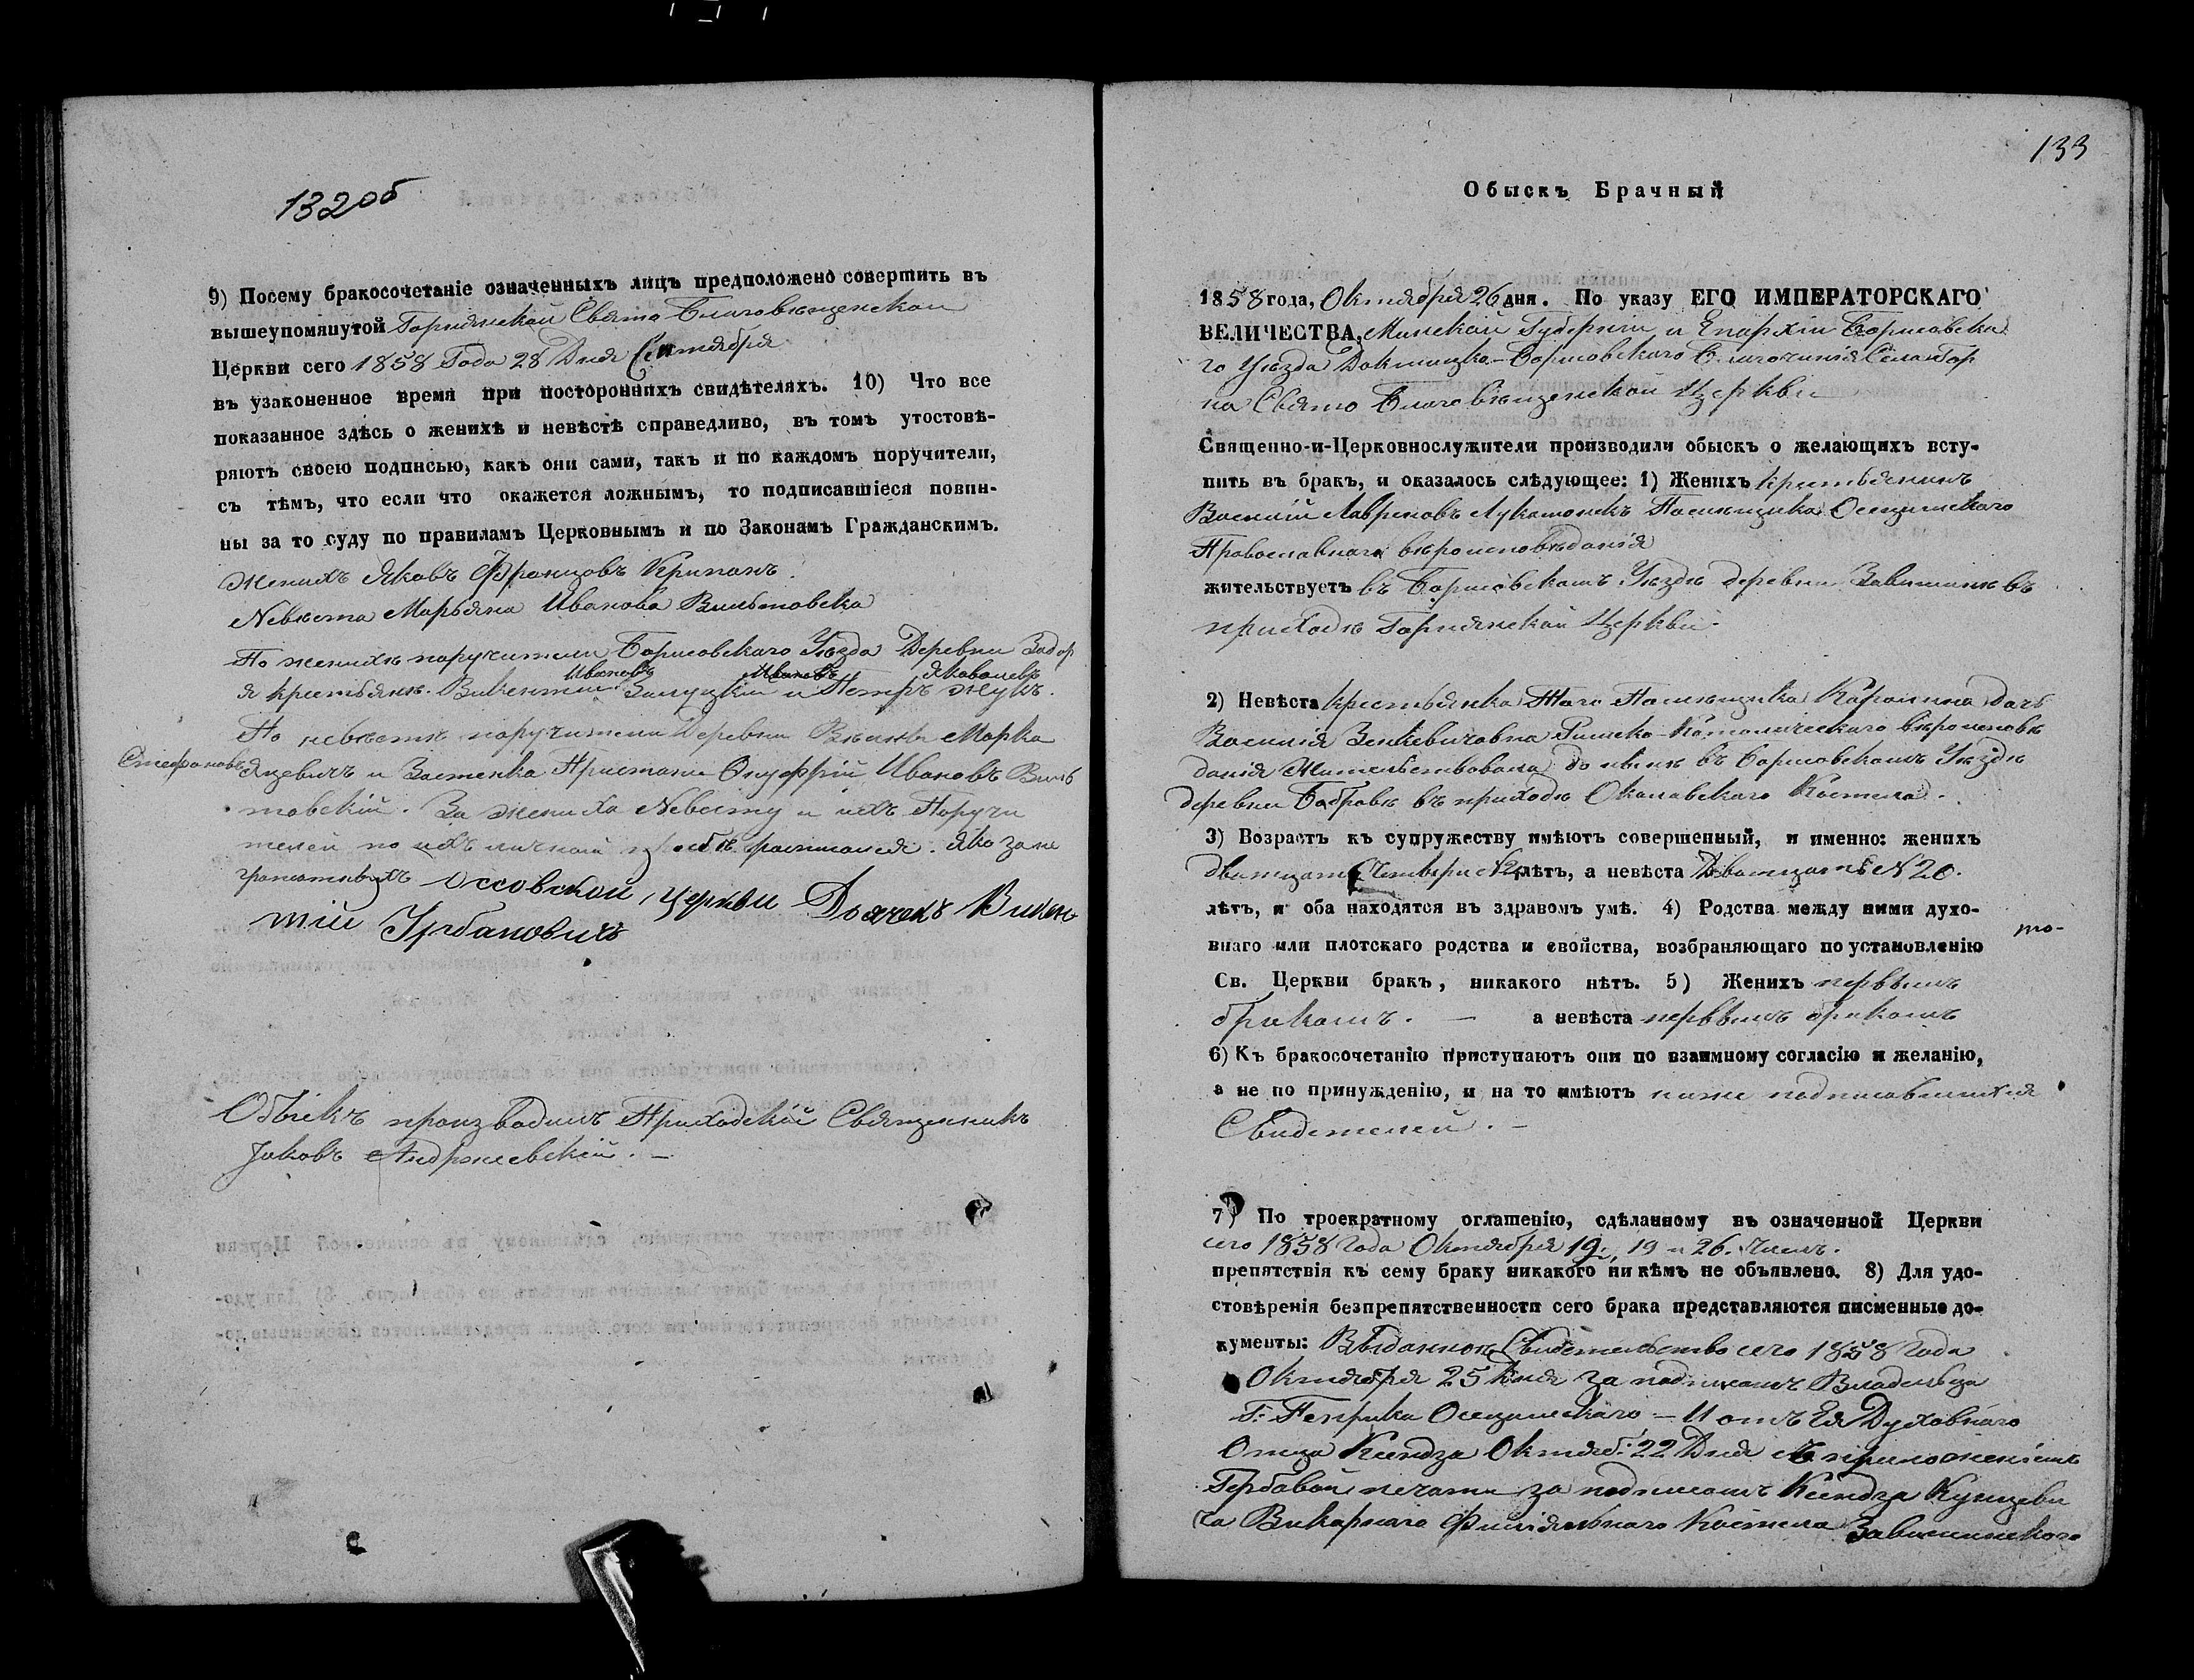 132об
9) Посему бракосочетаніе означенныхъ лицъ предположено совершить въ
вышеупомянутой Горнянской Свято Благовѣщенской
Церкви сего 1858 Года 28 Дня Сентября
въ узаконенное время при постороннихъ свидѣтеляхъ. 10) Что все
показанное здѣсь о женихѣ и невѣстѣ справедливо, въ томъ утостовѣ-
ряютъ своею подписью, какъ они сами, такъ и по каждомъ поручители,
съ тѣмъ, что если что окажется ложнымъ, то подписавшіеся повин-
ны за то суду по правиламъ Церковнымъ и по Законамъ Гражданскимъ.
Женихъ Яковъ Францовъ
Невѣста Марьяна Иванова
По женихѣ поручители Борисовскаго Уѣзда Деревни Задор
Ивановъ Ивановъ Яковлевъ
я крестьяне Викентій и Петръ Жукъ.
По невѣстѣ поручители Деревни Марко
Стефановъ
и Застенка Пристани Онуфрій Ивановъ Виль
товскій. За жениха Невесту и ихъ Поручи
телей по ихъ личной прозбѣ росписался. Яко за не
грамотныхъ Оссовской Церкви Дьячекъ Викен
тій Урбановичъ
Обыскъ производилъ Приходскій Священникъ
Іаковъ
133
Обыскъ Брачный
1858 года, Октября 26 дня. По указу ЕГО ИМПЕРАТОРСКАГО
ВЕЛИЧЕСТВА, Минской Губерніи и Епархіи Борисовска
го Уѣзда Докшицко-Борисовскаго Благочинія Села Гор
на Свято Благовѣщенской Церкви
Священно-и-Церковнослужители производили обыскъ о желающихъ всту-
пить въ бракъ, и оказалось слѣдующее: 1) Женихъ крестьянинъ
Василій Лавреновъ Лукашонекъ Помѣщика
Православнаго вѣроисповѣданія
жительствуетъ въ Борисовскомъ Уѣздѣ деревни въ
приходѣ Горнянской Церкви.
2) Невѣста крестьянка Того Помѣщика Каролина дочь
Василія Зенкевичовна Римско-Католическаго вѣроисповѣ
данія Жительствовала до нынѣ въ Борисовскомъ Уѣздѣ
деревни Бобровѣ въ приходѣ Околовскаго Костела.
3) Возрастъ къ супружеству имѣютъ совершенный, и именно: женихъ
дватцать Четыре лѣтъ, а невѣста Дватцать N 20.
лѣтъ, и оба находятся въ здравомъ умѣ. 4) Родства между ними духо-
внаго или плотскаго родства и свойства, возбраняющаго по установленію
Св. Церкви бракъ, никакого нѣтъ. 5) Женихъ первымъ
бракомъ. — а невѣста первымъ бракомъ
6) Къ бракосочетанію приступаютъ они по взаимному согласію и желанію,
а не по принужденію, и на то имѣютъ ниже подписавшихся
Свидетелей. —
7) По троекратному оглашенію, сдѣланному въ означенной Церкви
сего 1858 Года Октября 19 и 26. Числъ.
препятствія къ сему браку никакого ни кѣмъ не объявлено. 8) Для удо-
стовѣренія безпрепятственности сего брака представляются писменные до-
кументы: Свидетельство сего 1858 Года
Октября 25 Дня за подписомъ Владельца
Г: Генрика — И отъ Ея Духовнаго
Отца Ксендза Октяб: 22 Дня съ приложеніемъ
Гербавой печати за подписомъ Ксендза Кунцеви
ча Викарнаго Филіяльнаго Костела